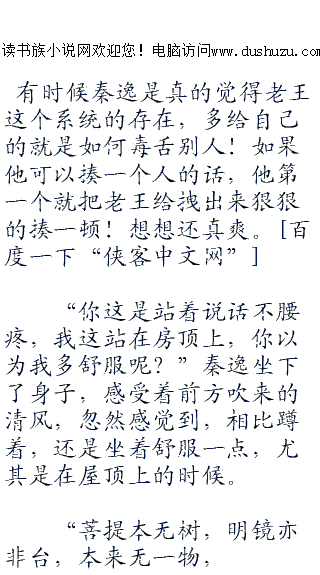 读书族小说网欢迎您！电脑访问www.dushuzu.com
有时候秦逸是真的觉得老王
这个系统的存在，多给自己
的就是如何毒舌别人！如果
他可以揍一个人的话，他第
一个就把老王给拽出来狠狠
的揍一顿！想想还真爽。[百
度一下“侠客中文网”]
“你这是站着说话不腰
疼，我这站在房顶上，你以
为我多舒服呢？”秦逸坐下
了身子，感受着前方吹来的
清风，忽然感觉到，相比蹲
着，还是坐着舒服一点，尤
其是在屋顶上的时候。
“菩提本无树，明镜亦
非台，本来无一物，